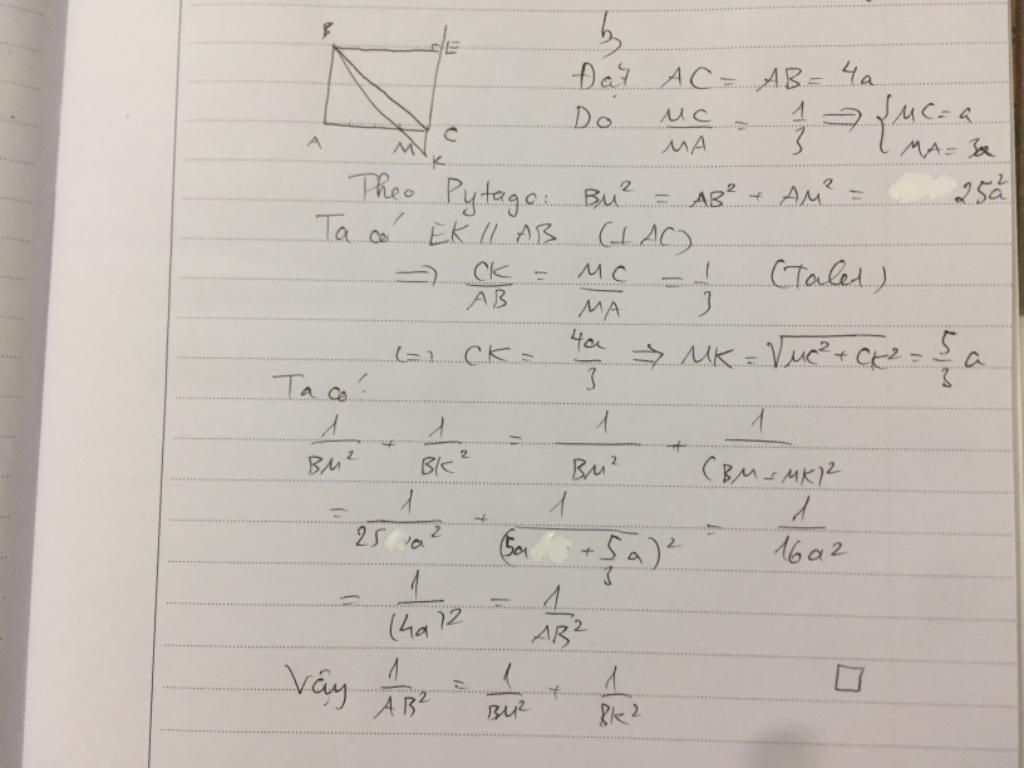 B
E
A
M
C
K
b,
Đặt AC = AB = 4a
Do MC/MA = 1/3 => { MC = a
MA = 3a
Theo Pytago: BM² = AB² + AM² = 25a²
Ta có EK // AB (⊥ AC)
=> CK/AB = MC/MA = 1/3 (Talet)
(=) CK = 4a/3 => MK = √(MC² + CK²) = 5/3 a
Ta có:
1/BM² + 1/BK² = 1/BM² + 1/(BM + MK)²
= 1/25a² + 1/(5a + 5/3 a)² = 1/16a²
= 1/(4a)² = 1/AB²
Vậy 1/AB² = 1/BM² + 1/BK² □